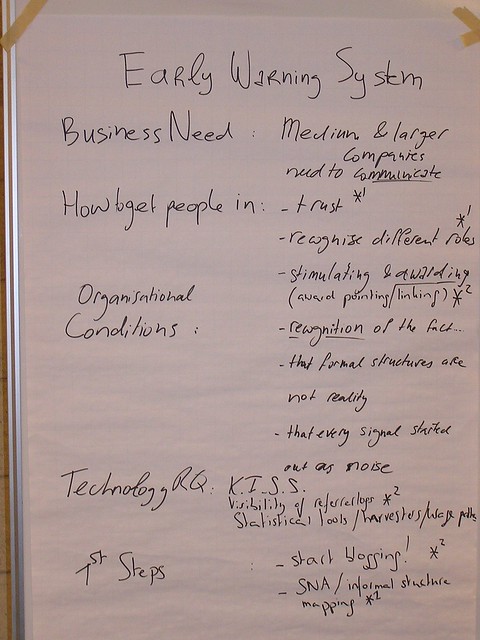 Early Warning System
Business Need : Medium & larger
Companies
need to communicate
How to get people in : - trust *1
- recognize different roles *1
- stimulating & awarding
(award pointing/linking) *2
Organisational
Conditions : - recognition of the fact...
- that formal structures are
not reality
- that every signal started
out as noise
Technology RQ : K.I.S.S.
Visibility of referrerlogs *2
Statistical Tools / harvesters / usage paths
1st Steps : - start blogging! *2
- SNA / informal structure
mapping *2